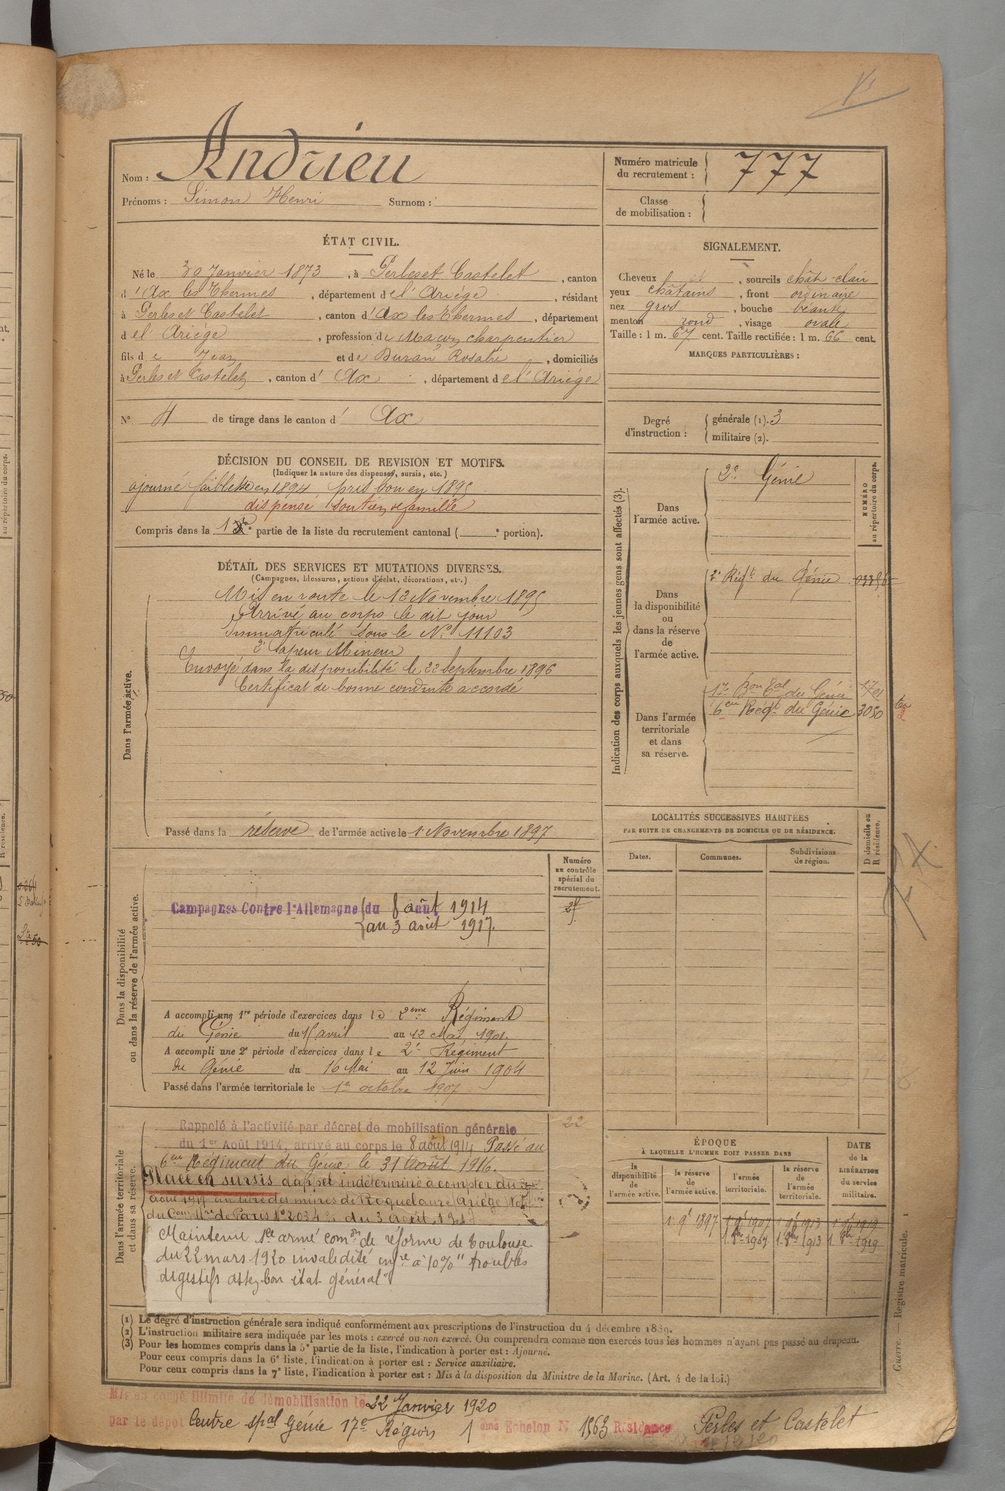 Nom : Andrieu
Prénoms : Simon Henri Surnom :
Numéro matricule du recrutement : 777
Classe de mobilisation :
ÉTAT CIVIL.
Né le 30 Janvier 1873, à Perles et Castelet, canton
d'Ax les Thermes, département de l'Ariège, résidant
à Perles et Castelet, canton d'Ax les Thermes, département
de l'Ariège, profession de Maçon charpentier
fils de Jean et de Duran Rosalie, domiciliés
à Perles et Castelet, canton d'Ax, département de l'Ariège
N° 4 de tirage dans le canton d'Ax
SIGNALEMENT.
Cheveux, sourcils chât-clair
yeux châtains, front ordinaire
nez gros, bouche béante
menton rond, visage ovale
Taille : 1 m. 67 cent. Taille rectifiée : 1 m. 66 cent.
MARQUES PARTICULIÈRES :
Degré d'instruction : générale (1). 3
militaire (2).
DÉCISION DU CONSEIL DE REVISION ET MOTIFS.
(Indiquer la nature des dispenses, sursis, etc.)
ajourné faiblesse 1894 pris bon en 1895
dispensé soutien de famille
Compris dans la 1re partie de la liste du recrutement cantonal ( e portion).
DÉTAIL DES SERVICES ET MUTATIONS DIVERSES.
(Campagnes, blessures, actions d'éclat, décorations, etc.)
Dans l'armée active.
Mis en route le 13 Novembre 1895
Arrivé au corps le dit jour
Immatriculé sous le N° 11103
2e Sapeur Mineur
Envoyé dans la disponibilité le 22 Septembre 1896
Certificat de bonne conduite accordé
Passé dans la réserve de l'armée active le 1 Novembre 1897
Indication des corps auxquels les jeunes gens sont affectés (3).
NUMÉRO au répertoire du corps.
Dans l'armée active.
2e Génie
Dans la disponibilité ou dans la réserve de l'armée active.
2e Régt du Génie
Dans l'armée territoriale et dans sa réserve.
17e Bon tal du Génie
6em Régt du Génie 3050
LOCALITÉS SUCCESSIVES HABITÉES
PAR SUITE DE CHANGEMENTS DE DOMICILE OU DE RÉSIDENCE.
Dates. Communes. Subdivisions de région.
D domicile ou R résidence.
Dans la disponibilité ou dans la réserve de l'armée active.
Numéro au contrôle spécial du recrutement.
Campagnes Contre l'Allemagne du 8 août 1914
au 3 août 1917
A accompli une 1re période d'exercices dans le 2ème Régiment
du Génie du 15 avril au 12 Mai 1901
A accompli une 2e période d'exercices dans le 2e Régiment
du Génie du 16 Mai au 12 Juin 1904
Passé dans l'armée territoriale le 1er octobre 1907
Dans l'armée territoriale et dans sa réserve.
22
Rappelé à l'activité par décret de mobilisation générale
du 1er Août 1914, arrivé au corps le 8 août 1914 Passé au
6em Régiment du Génie le 31 Août 1916.
Placé en sursis d'appel indéterminé à compter du 3
août 1917 au titre des mines de Roquelaure Ariège
de Paris n° 2034 du 3 août 1917
Maintenu Sce armé comon de réforme de Toulouse
du 22 mars 1920 invalidité infre à 10% "troubles
digestifs assez bon état général"
ÉPOQUE
À LAQUELLE L'HOMME DOIT PASSER DANS
la disponibilité de l'armée active.
la réserve de l'armée active.
l'armée territoriale.
la réserve de l'armée territoriale.
DATE de la LIBÉRATION du service militaire.
1 9b 1897 1 9b 1907 1 9b 1913 1 9b 1919
1 8b 1907 1 8b 1913 1 8b 1919
(1) Le degré d'instruction générale sera indiqué conformément aux prescriptions de l'instruction du 4 décembre 1889.
(2) L'instruction militaire sera indiquée par les mots : exercé ou non exercé. On comprendra comme non exercés tous les hommes n'ayant pas passé au drapeau.
(3) Pour les hommes compris dans la 5e partie de la liste, l'indication à porter est : Ajourné.
Pour ceux compris dans la 6e liste, l'indication à porter est : Service auxiliaire.
Pour ceux compris dans la 7e liste, l'indication à porter est : Mis à la disposition du Ministre de la Marine. (Art. 4 de la loi.)
Guerre. — Registre matricule. 1
Mis en congé illimité de démobilisation le 22 Janvier 1920
par le dépôt Centre spal Génie 17e Région 1 ème Echelon N° 1563 Résidence Perles et Castelet